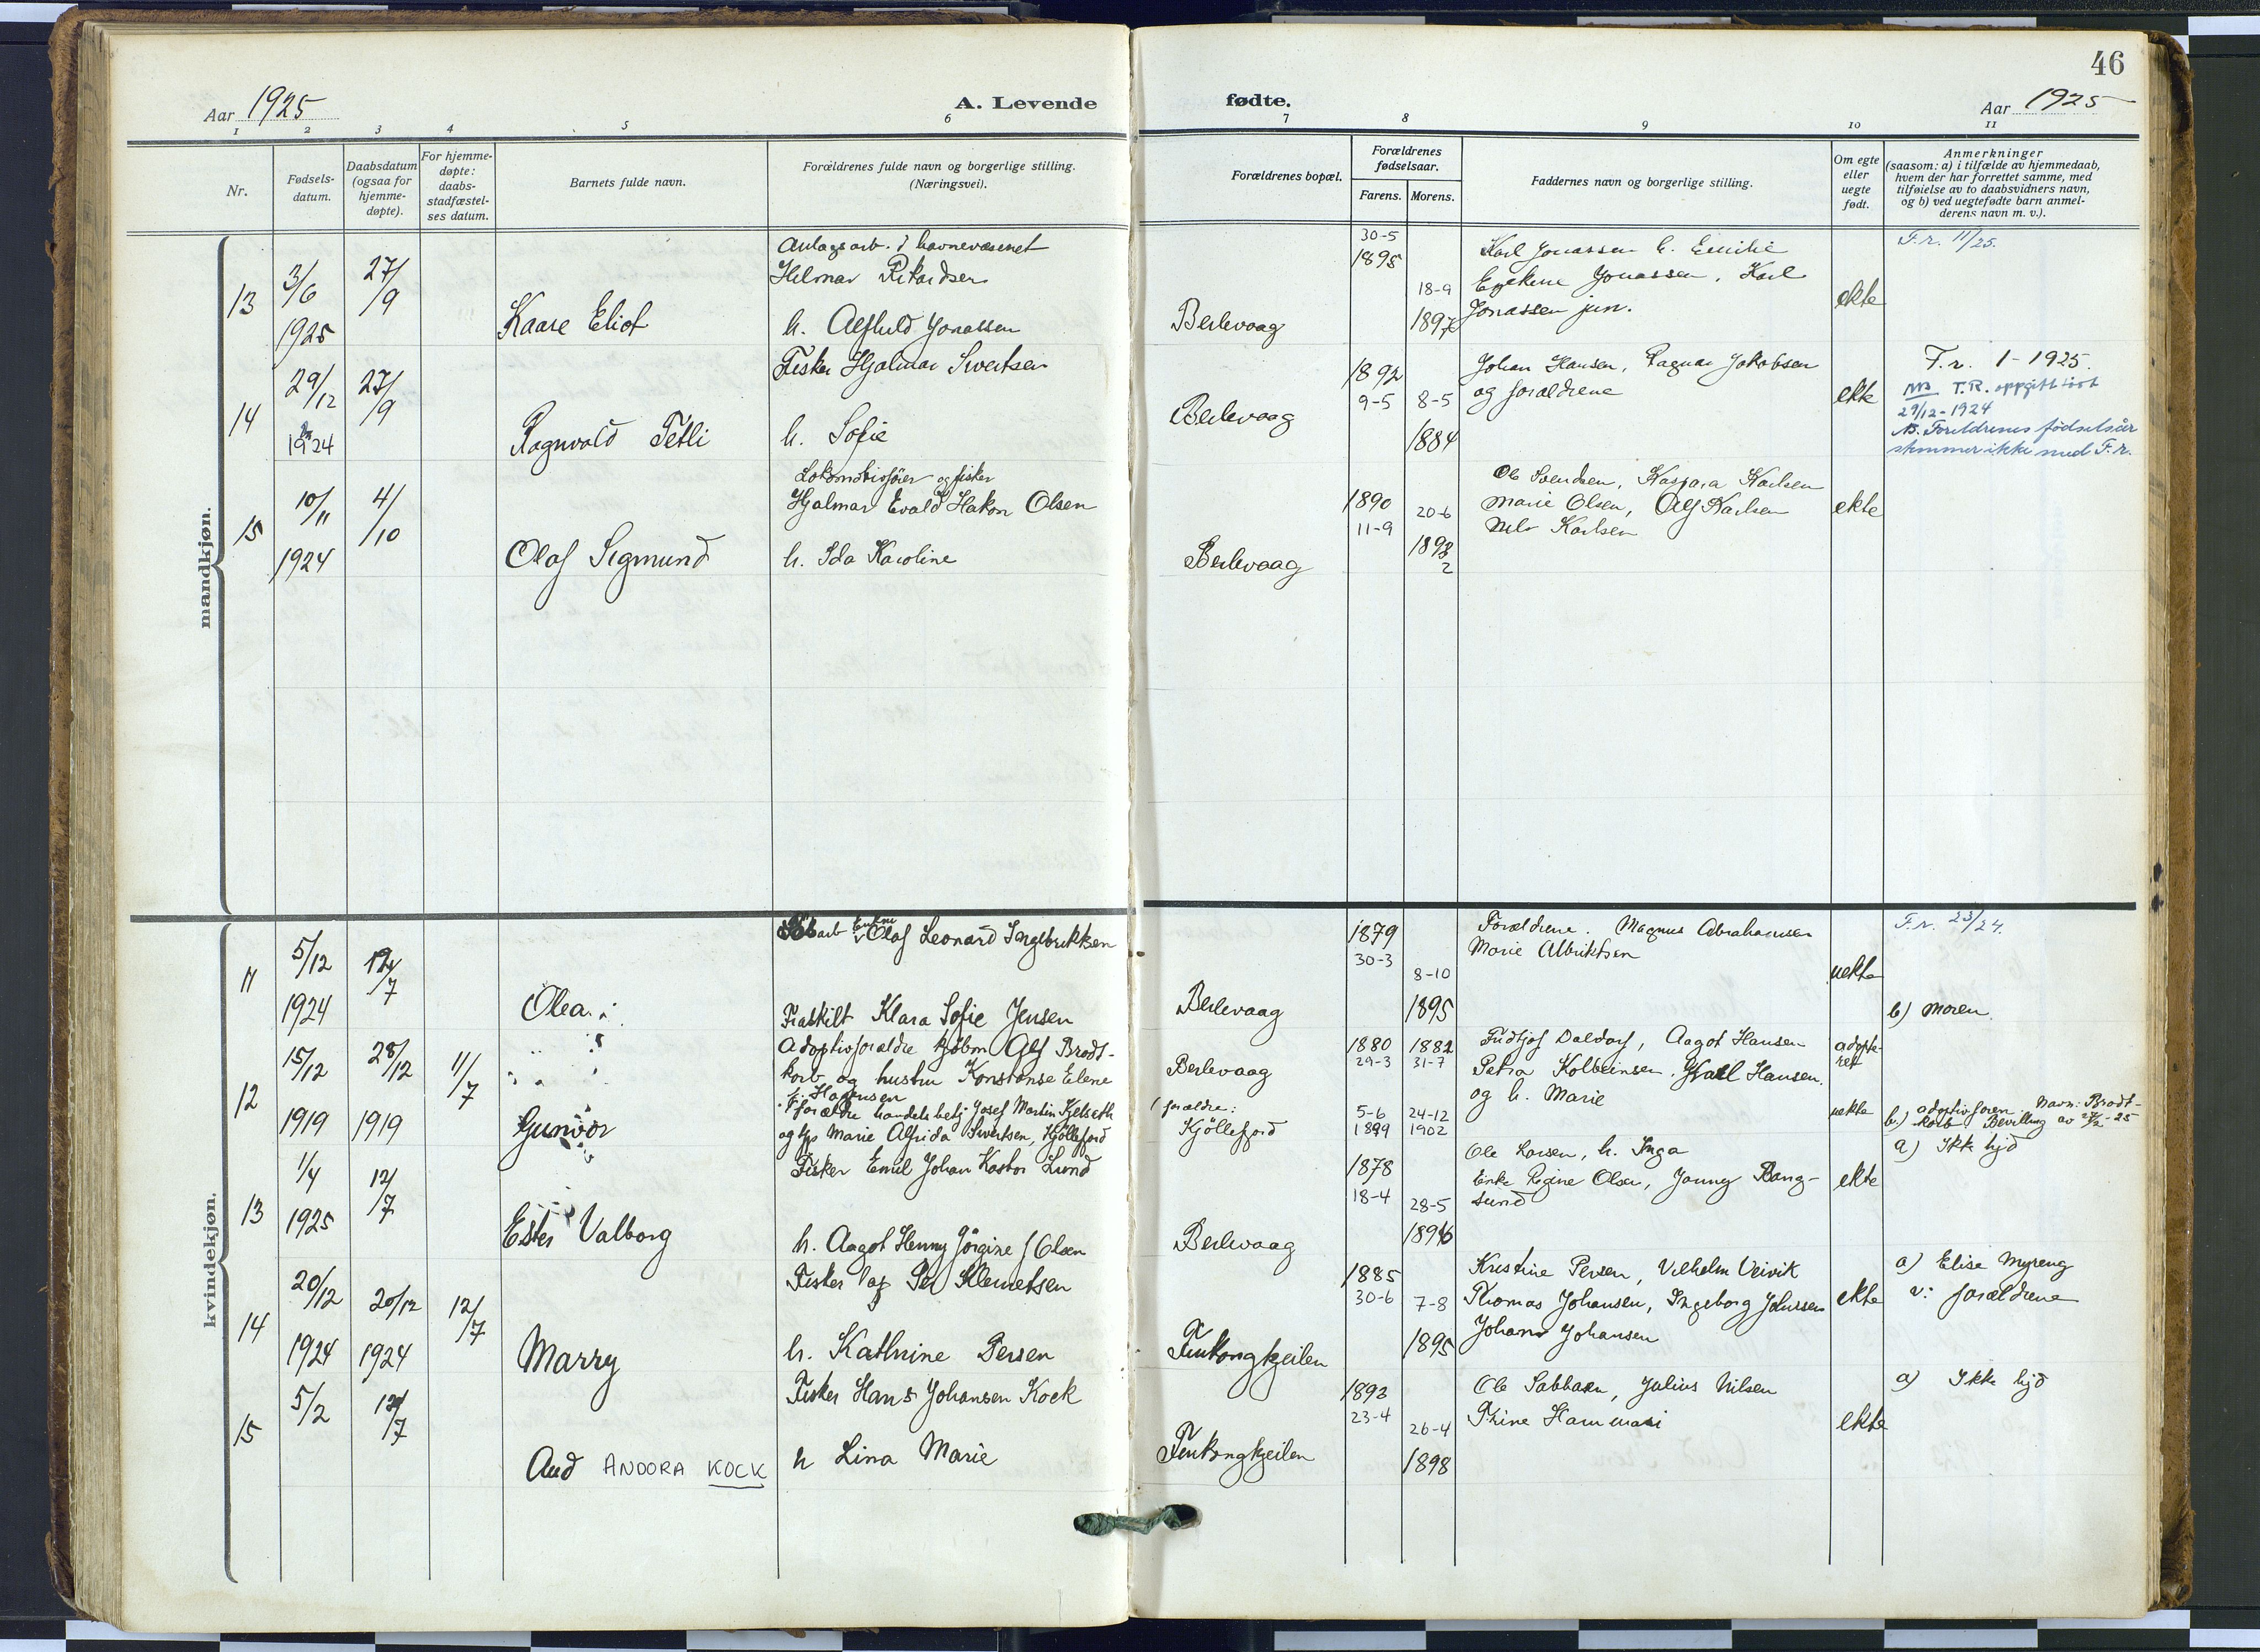 46
Aar 1925
A. Levende
fødte.
Aar 1925
1 2 3 4 5 6 7 8 9 10 11
Nr.
Fødsels-
datum.
Daabsdatum
(ogsaa for
hjemme-
døpte).
For hjemme-
døpte:
daabs-
stadfæstel-
ses datum.
Barnets fulde navn.
Forældrenes fulde navn og borgerlige stilling.
(Næringsvei).
Forældrenes bopæl.
Forældrenes
fødselsaar.
Farens. Morens.
Faddernes navn og borgerlige stilling.
Om egte
eller
uegte
født.
Anmerkninger
(saasom: a) i tilfælde av hjemmedaab,
hvem der har forrettet samme, med
tilføielse av to daabsvidners navn,
og b) ved uegtefødte barn anmel-
derens navn m. v.).
mandkjøn.
13
3/6
1925
27/9
Kaare Eliot
Anlagsarb. i havnevæsenet
Hilmar Rikardsen
h. Alfhild Jonassen
Berlevaag
30-5
1895
18-9
1897
Karl Jonassen h. Emilie
Jonassen, Karl
Jonassen jun.
ekte
F.r. 11/25.
14
29/12
1924
27/9
Ragnvald Petli
Fisker Hjalmar Sivertsen
h. Sofie
Berlevaag
1892
9-5
8-5
1884
Johan Hansen, Ragnar Jakobsen
og forældrene
ekte
F.r. 1-1925.
NB T.R. oppgitt født
29/12-1924
NB. Foreldrenes fødselsår
stemmer ikke med F.r.
15
10/11
1924
4/10
Olaf Sigmund
Lokomotivfører og fisker
Hjalmar Evald Hakon Olsen
h. Ida Karoline
Berlevaag
1890
11-9
20-6
1892
2
Ole Svendsen, Kaspara Karlsen
Marie Olsen, Alf Karlsen
Nils Karlsen
ekte
kvindekjøn.
11
5/12
1924
12/7
Olea
arb Enkem Olaf Leonard Ingebriktsen
Fraskilt Klara Sofie Jensen
Berlevaag
1879
30-3
8-10
1895
Forældrene. Magnus Abrahamsen
Marie Albriktsen
uekte
F.r. 23/24.
b) moren
12
15/12
1919
28/12
1919
11/7
Gunvor
Adoptivforældre kjøbm Alf Brodt-
korb og hustru Konstanse Elene
f. Hagensen
Forældre handelsbetj Josef Martin Kjelseth
og tjp Marie Alfrida Sivertsen, Kjøllefjord
Berlevaag
forældre:
Kjøllefjord
1880 1882
29-3 31-7
5-6 24-12
1899 1902
Fridtjof Daldorf, Aagot Hansen
Petra Kolbeinsen, Karl Hansen
og h. Marie
adopte-
ret
uekte
b.) adoptivfaren Navn: Brodt-
korb Bevilling av 27/2-25
13
1/4
1925
12/7
Ester Valborg
Fisker Emil Johan Kastor Lund
h. Aagot Henny Jørgine f Olsen
Berlevaag
1878
18-4
28-5
1896
Ole Larsen, h. Inga
Enke Regine Olsen, Jenny Rang-
sund
ekte
a) Ikke hjd
14
20/12
1924
20/12
1924
12/7
Marry
Fisker og Per Klemetsen
h. Kathrine Persen
Finkongkjeilen
1885
30-6
7-8
1895
Kristine Persen, Vilhelm Veivik
Thomas Johansen, Ingeborg Johnssen
Johans Johansen
ekte
a) Elise Myreng
v: forældrene
15
5/2
12/7
Aud ANDORA KOCK
Fisker Hans Johansen Kock
h Lina Marie
Finkongkjeilen
1892
23-4
26-4
1898
Ole Sabbasen, Julius Nilsen
Thine Hammari
ekte
a) Ikke hjd